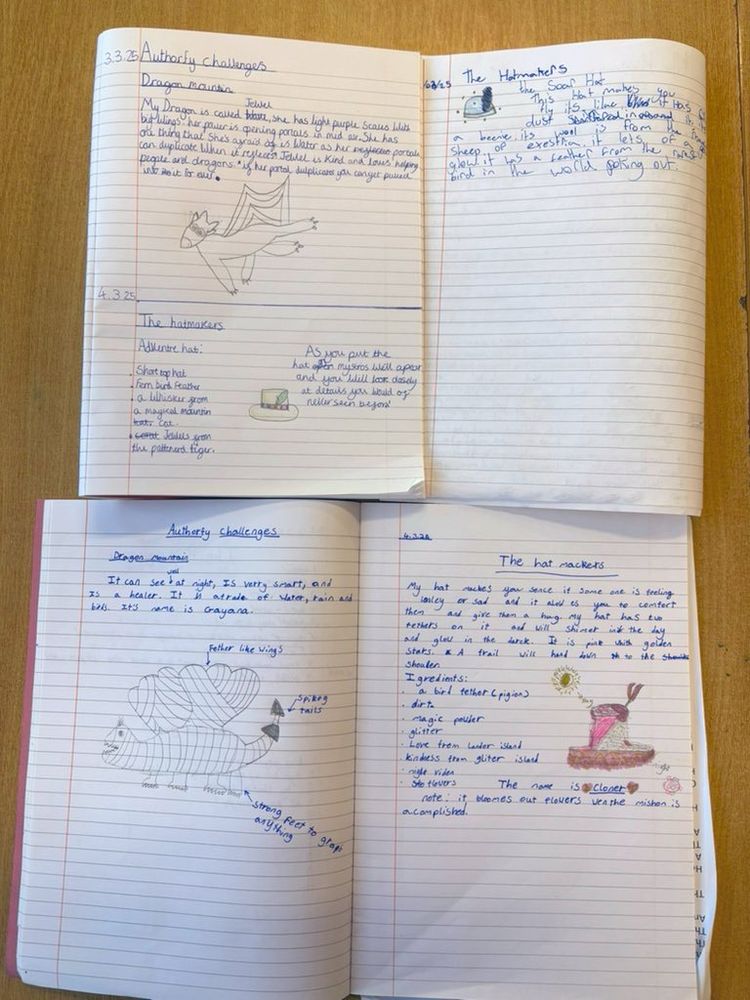 3.3.25 Authorfy challenges
Dragon mountin
Jewel
My Dragon is called she has light purple scales With
but wings. her power is opening portals in mid air. She has
one thing that she's afraid of is Water as her portals
can duplicate When it reflects Jewel is Kind and Loves helping
people and dragons. if her portal duplicates you can get pulled
into it for ever.
4.3.25
The hatmakers
Adventre hat:
Short top hat
Fern bird Feather
a Whisker from
a magical mountin
cat.
Jewels from
the patternd tiger.
As you put the
hat on will apear
and you Will look closely
at details you Would of
never seen before!
The Hatmakers
the Soar Hat
This Hat makes you
fly its like it Has
dust in it
a beenie. its wool is from the
sheep of it lets of a
glow. it has a feather from the rarest
bird in the world poking out.
Authorfy challenges
Dragon Mountain
well
It can see at night, Is verry smart, and
Is a healer. It is afrade of water, rain and
birds. It's name is Crayana.
Fether like wings
Spikey
tails
strong feet to grab
anything
4.3.25
The hat mackers
My hat mackes you sence if some one is feeling
lonley or sad and it alows you to comfort
them and give them a hug. My hat has two
fethers on it and will shimer in the day
and glow in the darck. It is pink with golden
stars. A trail will hand down to the
shoulder.
Igredients:
a bird fether (pigion)
dirt
magic powder
glitter
Love from island
kindness from gliter island
night
flowers
day
night
The name is Cloner
note: it bloomes out flowers wen the mishon is
acomplished.